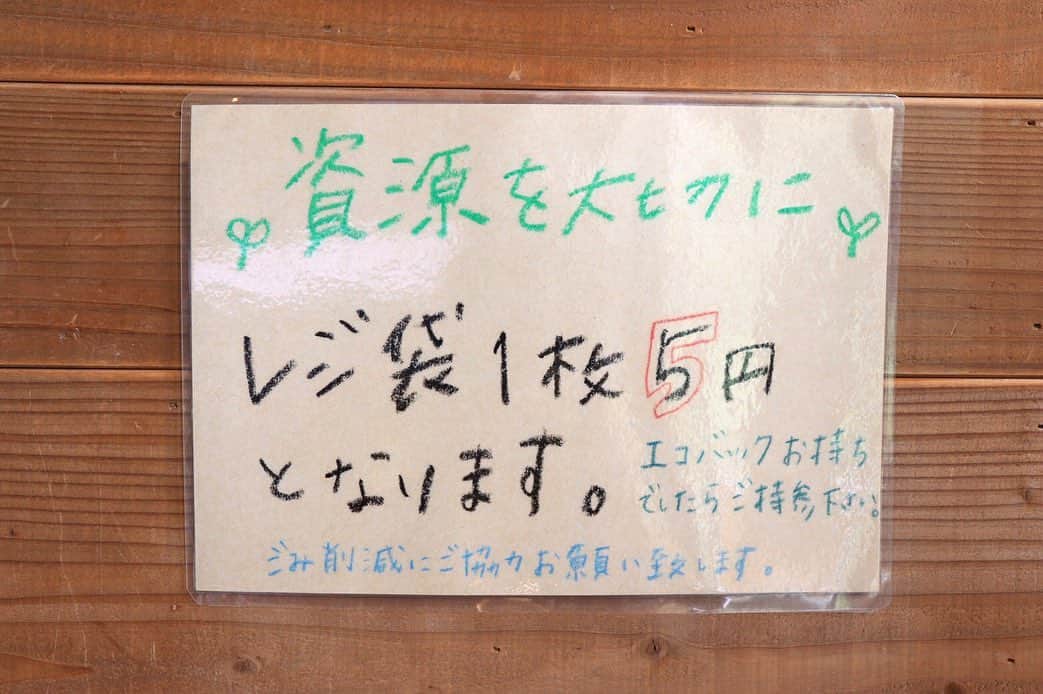 資源を大切に
レジ袋1枚5円
となります。
エコバックお持ち
でしたらご持参下さい。
ごみ削減にご協力お願い致します。